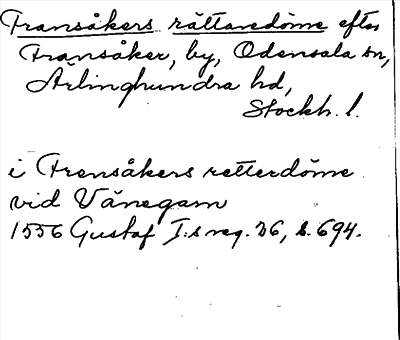 Fransåkers rättaredöme efter
Fransåker, by, Odensala sn,
Ärlinghundra hd,
Stockh. l.
i Frensåkers retterdöme
vid Vänegarn
1556 Gustaf I:s reg. 26, s. 694.